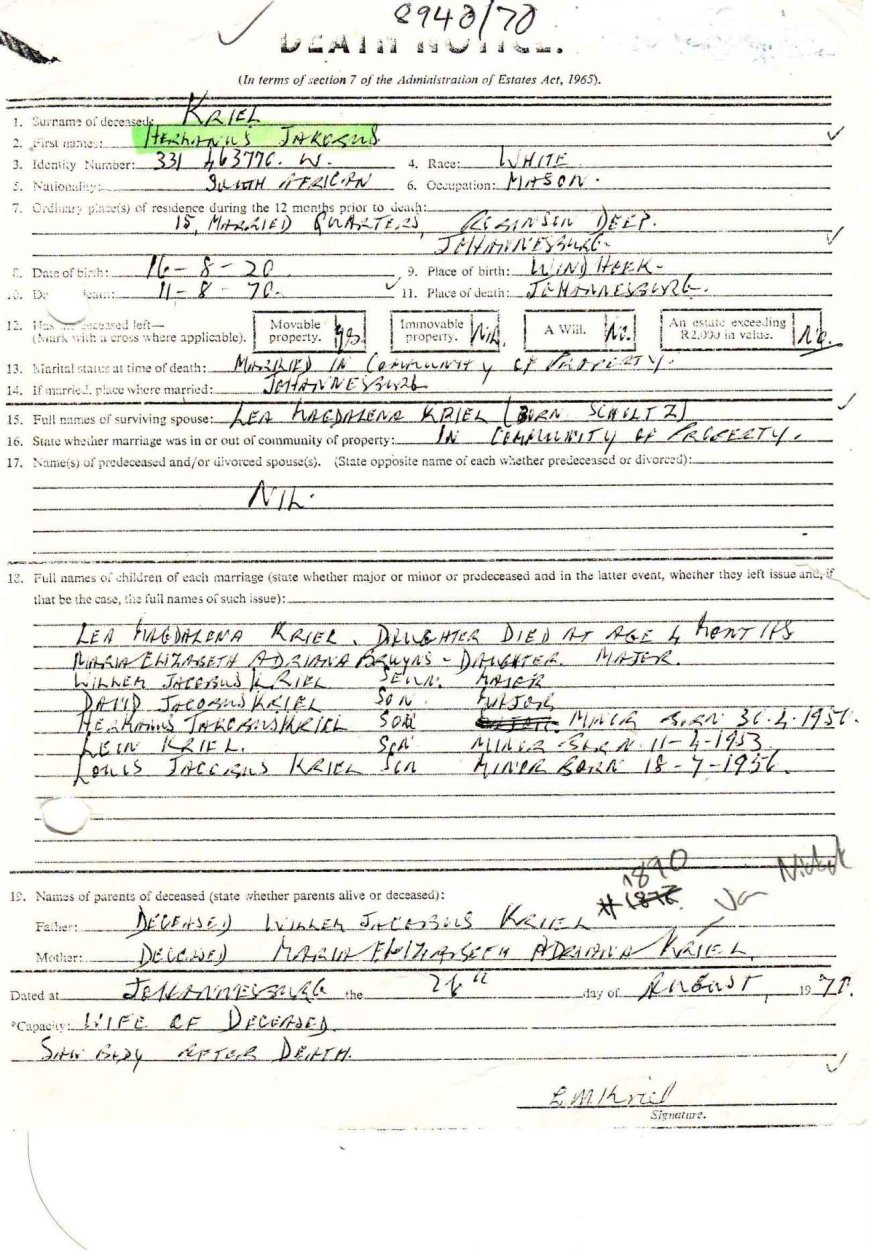 8940/70
DEATH NOTICE.
(In terms of section 7 of the Administration of Estates Act, 1965).
1. Surname of deceased: KRIEL
2. First names: HERMANUS JAKOBUS
3. Identity Number: 331 463770. W. 4. Race: WHITE
5. Nationality: SOUTH AFRICAN 6. Occupation: MASON.
7. Ordinary place(s) of residence during the 12 months prior to death:
15, MARRIED QUARTERS, ROBINSON DEEP.
JOHANNESBURG.
8. Date of birth: 16-8-20 9. Place of birth: WINDHOEK-
10. D death: 11-8-70. 11. Place of death: JOHANNESBURG.
12. Has the deceased left—
(Mark with a cross where applicable). Movable property. yes. Immovable property. Nil. A Will. No. An estate exceeding R2,000 in value. No.
13. Marital status at time of death: MARRIED IN COMMUNITY OF PROPERTY.
14. If married, place where married: JOHANNESBURG
15. Full names of surviving spouse: LEA MAGDALENA KRIEL (BORN SCHOLTZ)
16. State whether marriage was in or out of community of property: IN COMMUNITY OF PROPERTY.
17. Name(s) of predeceased and/or divorced spouse(s). (State opposite name of each whether predeceased or divorced):
NIL.
18. Full names of children of each marriage (state whether major or minor or predeceased and in the latter event, whether they left issue and, if
that be the case, the full names of such issue):
LEA MAGDALENA KRIEL. DAUGHTER DIED AT AGE 4 MONTHS
MARIA ELIZABETH ADRIANA BRUYNS - DAUGHTER. MAJOR.
WILLEM JACOBUS KRIEL SEUN. MAJOR
DAVID JACOBUS KRIEL SON MAJOR
HERMANUS JAKOBUS KRIEL SON MINOR BORN 30-4-195
KRIEL. SON MINOR BORN 11-4-1953
LOUIS JACOBUS KRIEL SON MINOR BORN 18-7-1956.
1890
# 1876 Jan
19. Names of parents of deceased (state whether parents alive or deceased):
Father: DECEASED WILLEM JACOBUS KRIEL
Mother: DECEASED MARIA ELIZABETH ADRIANA KRIEL.
Dated at JOHANNESBURG the 26" day of AUGUST, 1970.
*Capacity: WIFE OF DECEASED
SAW BODY AFTER DEATH.
L M Kriel
Signature.